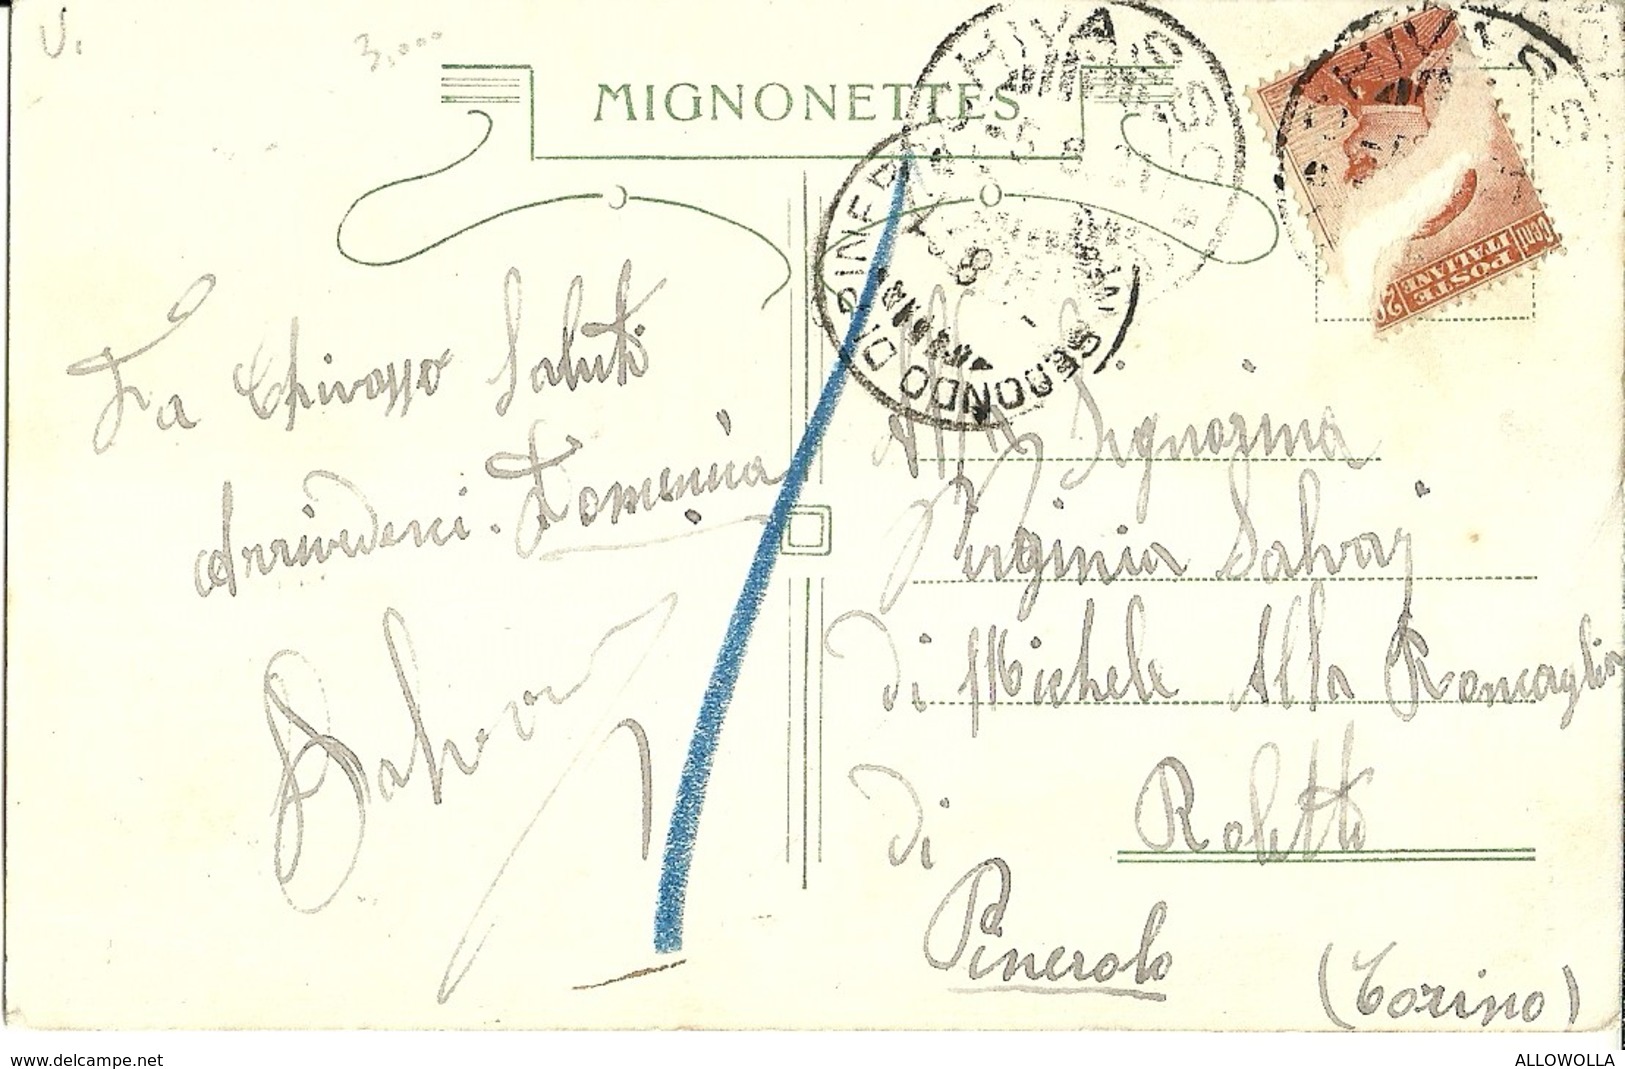 V.
3,000
MIGNONETTES
CHIVASSO
S. SECONDO DI PINEROLO
Cent 20
POSTE
ITALIANE
Da Chivasso Saluti
Arrivederci. Domenica
Salvai
Alla Signorina
Virginia Salvaj
di Michele Alla Roncaglia
di Roletto
Pinerolo
(Torino)
www.delcampe.net
ALLOWOLLA